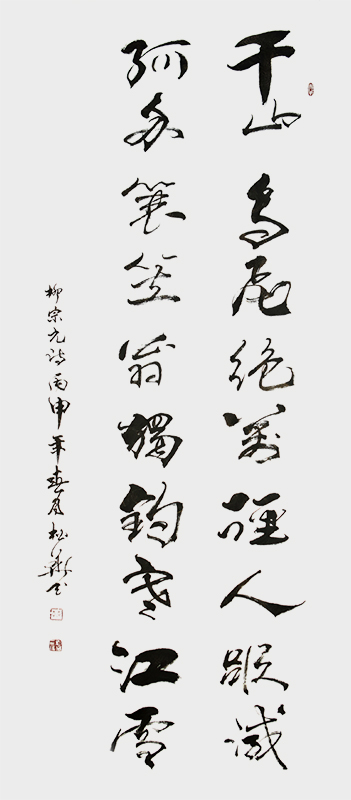 千山鳥飛絕萬徑人蹤滅
孤舟蓑笠翁獨釣寒江雪
柳宗元詩丙申年春月松